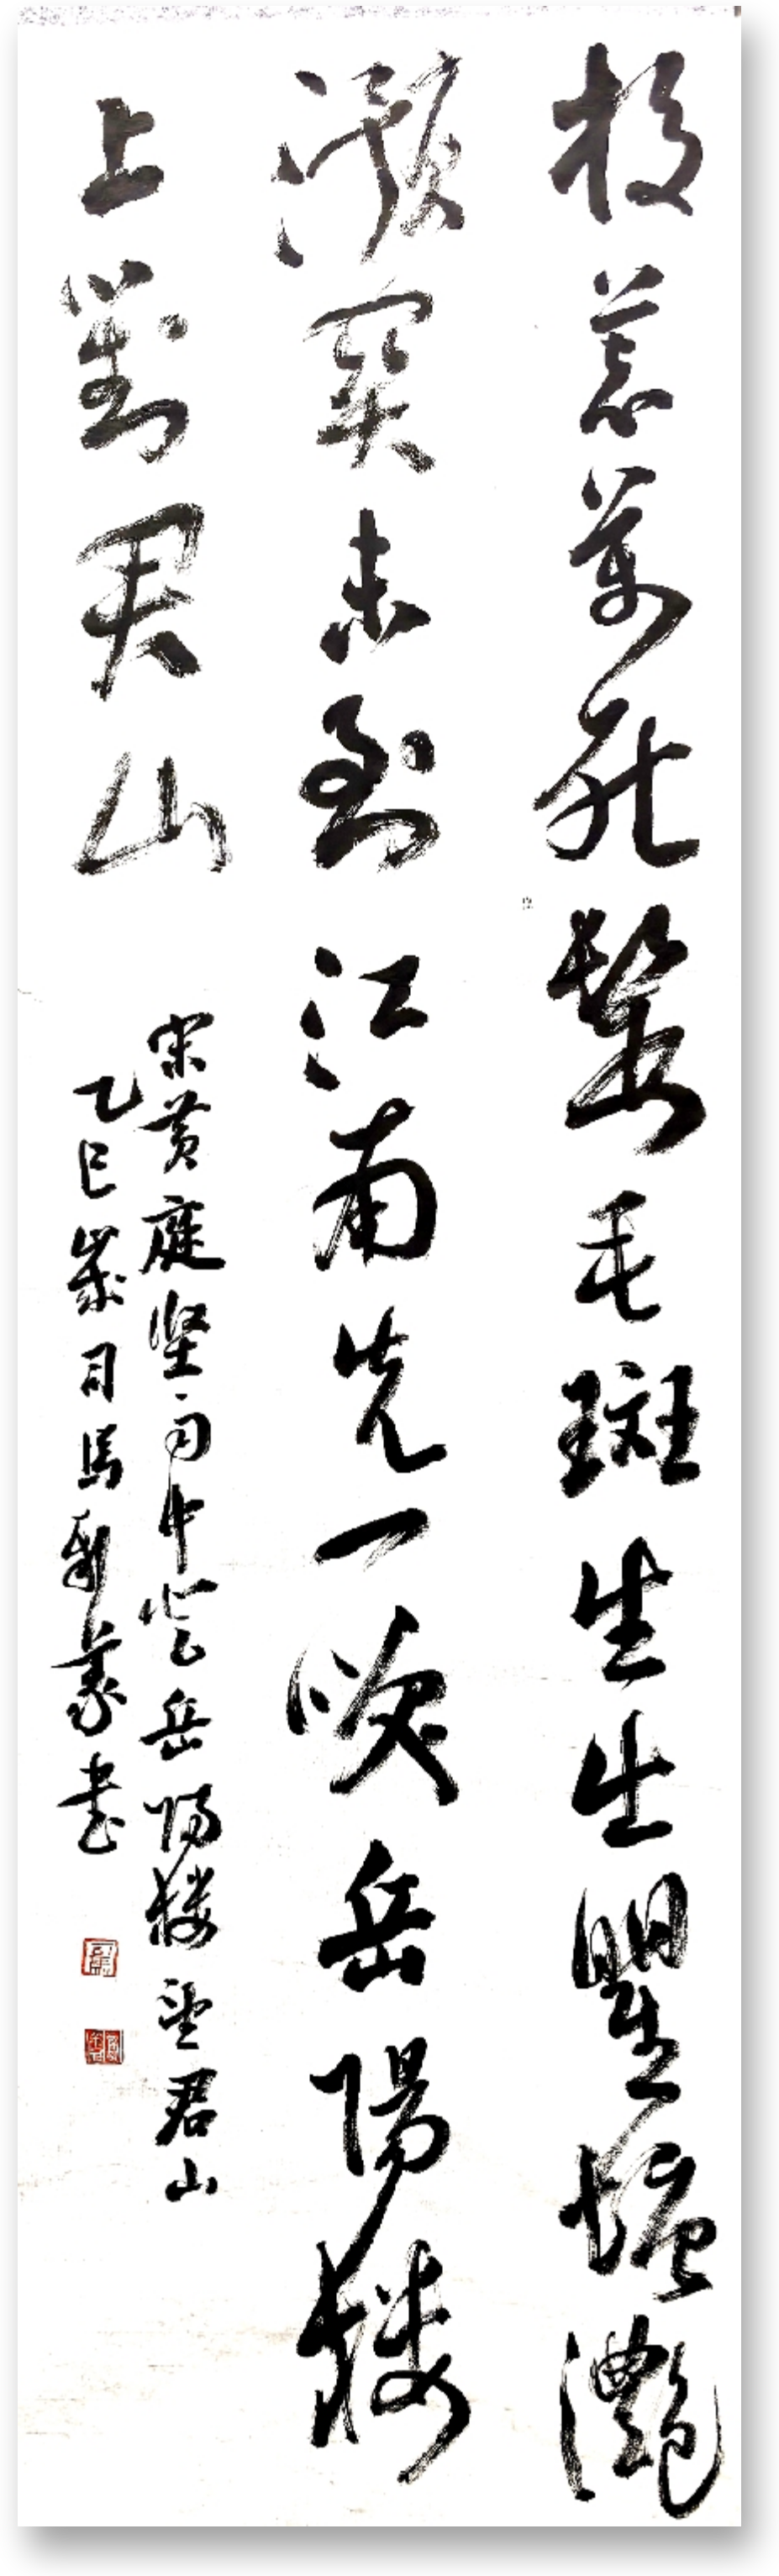 投荒萬死鬢毛斑生出瞿塘灩
澦關未到江南先一咲岳陽樓
上對君山
宋黄庭堅雨中登岳陽樓望君山
乙巳歲司馬新義書